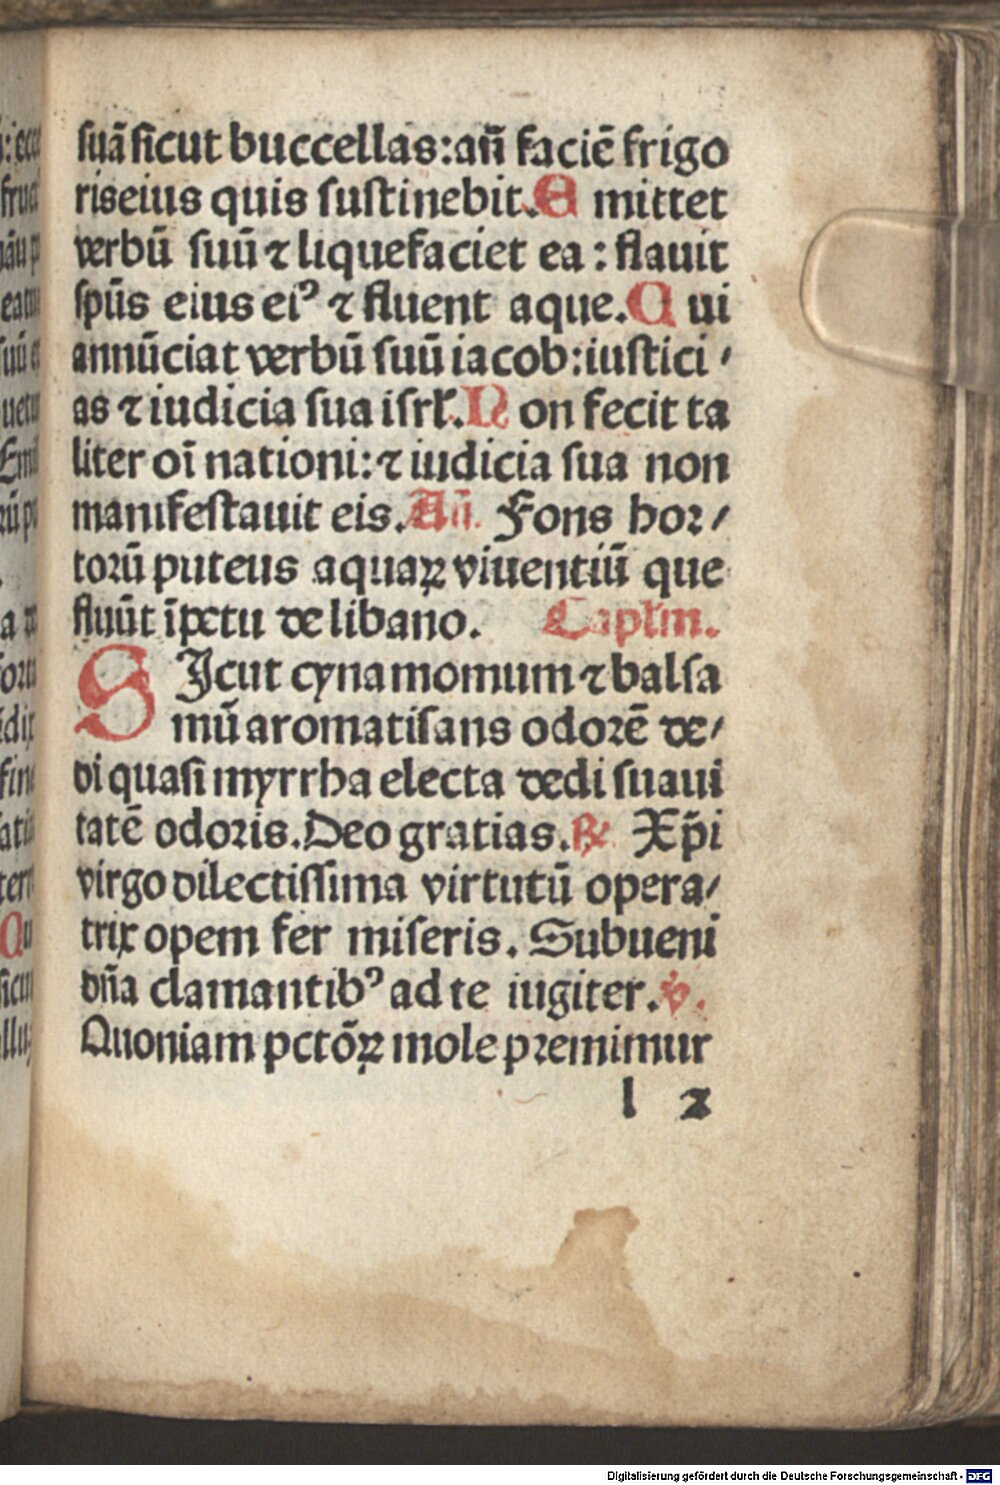 suã sicut buccellas: añ faciē frigo
ris eius quis sustinebit. E mittet
verbũ suũ ⁊ liquefaciet ea: flauit
spũs eius eiꝰ ⁊ fluent aque. Q ui
annũciat verbũ suũ iacob: iustici⸗
as ⁊ iudicia sua isrl̃. N on fecit ta
liter oĩ nationi: ⁊ iudicia sua non
manifestauit eis. Añ. Fons hor⸗
torũ puteus aquaꝝ viuentiũ que
fluũt ĩpetu de libano. Capl̃m.
SIcut cynamomum ⁊ balsa
mũ aromatisans odorē de⸗
di quasi myrrha electa dedi suaui
tatē odoris. Deo gratias. ℟ Xp̃i
virgo dilectissima virtutũ opera⸗
trix opem fer miseris. Subueni
dña clamantibꝰ ad te iugiter. ℣.
Quoniam pctõꝝ mole premimur
l 2
Digitalisierung gefördert durch die Deutsche Forschungsgemeinschaft - DFG